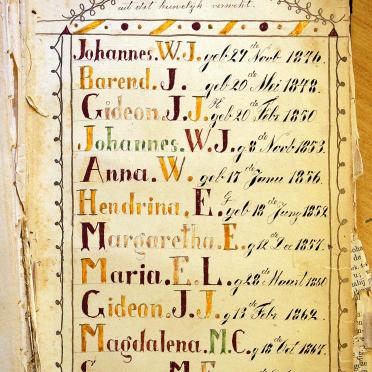 uit dat huwelyk verwekt.
Johannes. W. J. geb 27 de Novb 1846.
Barend. J. geb 20 de Mei 1848.
Gideon. J. J. geb 20 de Feb 1850
Johannes. W. J. g 8 de Novb 1853.
Anna. W. geb 15 de 1856.
Hendrina. E. geb 18 de
Margaretha. E. g 12 de Dec 1857.
Maria. E. L. g 28 de Maart 1860
Gideon. J. J. g 13 de Feb 1862.
Magdalena. M. C. g 18 de Oct 1867.
M. E.